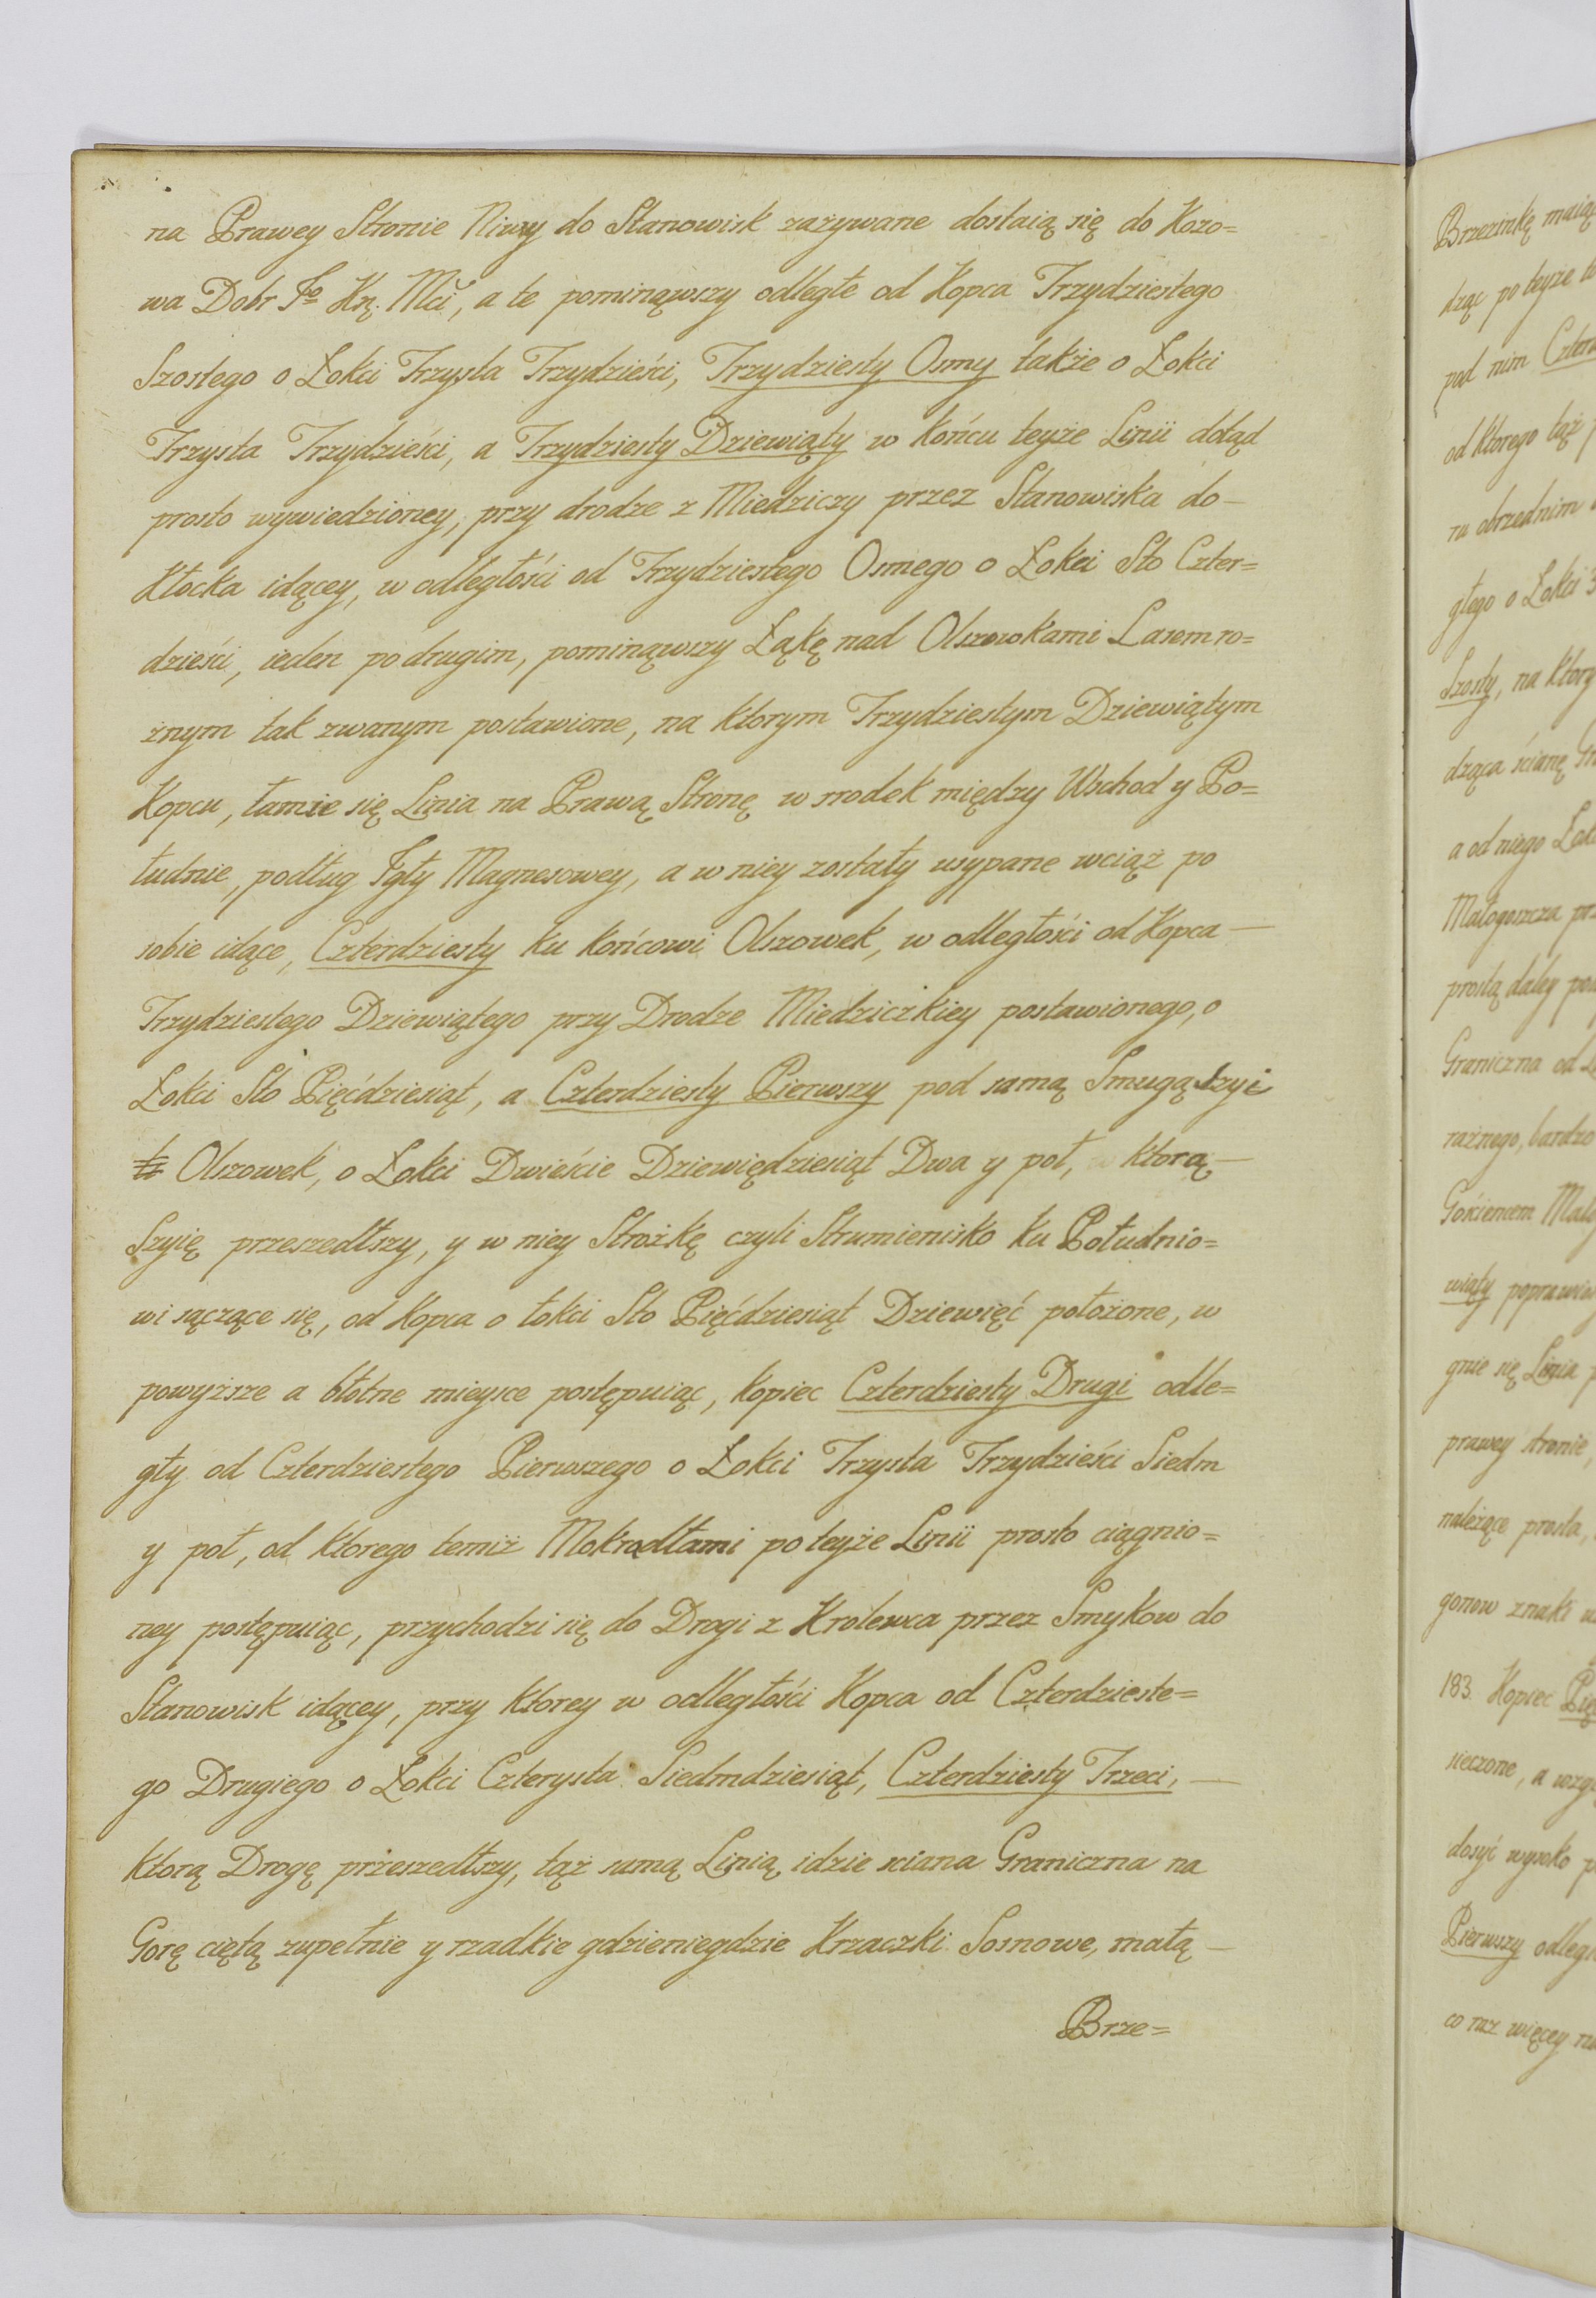 na Prawey Stronie Niwy do Stanowisk zażywane dostaią się do Kozo=
wa Dobr Jo Kę. Mći, a te pominąwszy odległe od Kopca Trzydziestego
Szostego o Łokci Trzysta Trzydzieści, Trzydziesty Osmy także o Łokci
Trzysta Trzydzieści, a Trzydziesty Dziewiąty w końcu teyże Linii dotąd
prosto wywiedzioney, przy drodze z Miedziczy przez Stanowiska do—
Kłocka idącey, w odległości od Trzydziestego Osmego o Łokci Sto Czter=
dzieści, ieden po drugim, pominąwszy Łąkę nad Olszowkami Lasem ro=
żnym tak zwanym postawione, na ktorym Trzydziestym Dziewiątym
Kopcu, łamie się Linia na Prawą Stronę w srodek między Wschod y Po=
łudnie, podług Igły Magnesowey, a w niey zostały usypane wciąż po
sobie idące, Czterdziesty ku końcowi Olszowek, w odległości od Kopca—
Trzydziestego Dziewiątego przy Drodze Miedziczkiey postawionego, o
Łokci Sto Pięćdziesiąt, a Czterdziesty Pierwszy pod samą Smugą szyi
Olszowek, o Łokci Dwieście Dziewiędziesiąt Dwa y poł, ktorą—
Szyię przeszedłszy, y w niey Strożkę czyli Strumienisko ku Południo=
wi sączące się, od Kopca o łokci Sto Pięćdziesiąt Dziewięć położone, w
powyższe a błotne mieysce postępuiąc, kopiec Czterdziesty Drugi odle=
gły od Czterdziestego Pierwszego o Łokci Trzysta Trzydzieści Siedm
y poł, od ktorego temiż Mokradłami po teyże Linii prosto ciągnio=
ney postępuiąc, przychodzi się do Drogi z Krolewca przez Smykow do
Stanowisk idącey, przy ktorey w odległości Kopca od Czterdzieste=
go Drugiego o Łokci Czterysta Siedmdziesiąt, Czterdziesty Trzeci,—
ktorą Drogę przeszedłszy, tąż samą Linią, idzie sciana Graniczna na
Gorę ciętą zupełnie y rzadkie gdzieniegdzie Krzaczki Sosnowe, małą—
Brze=
Brzezinkę maią
dząc po teyże
pod nim
od ktorego taż
obrzednim
głego o Łokci
Szosty, na ktory
dząca ścianę
a od niego
Małogoszcza
prostą daley
Graniczna od
rażnego, bardzo
Gościencem
wiąty
gnie się Linia
prawey stronie,
należące prosta,
gonow znaki
183. Kopiec
sieczone, a
dosyć wysoko
Pierwszy
co raz więcey